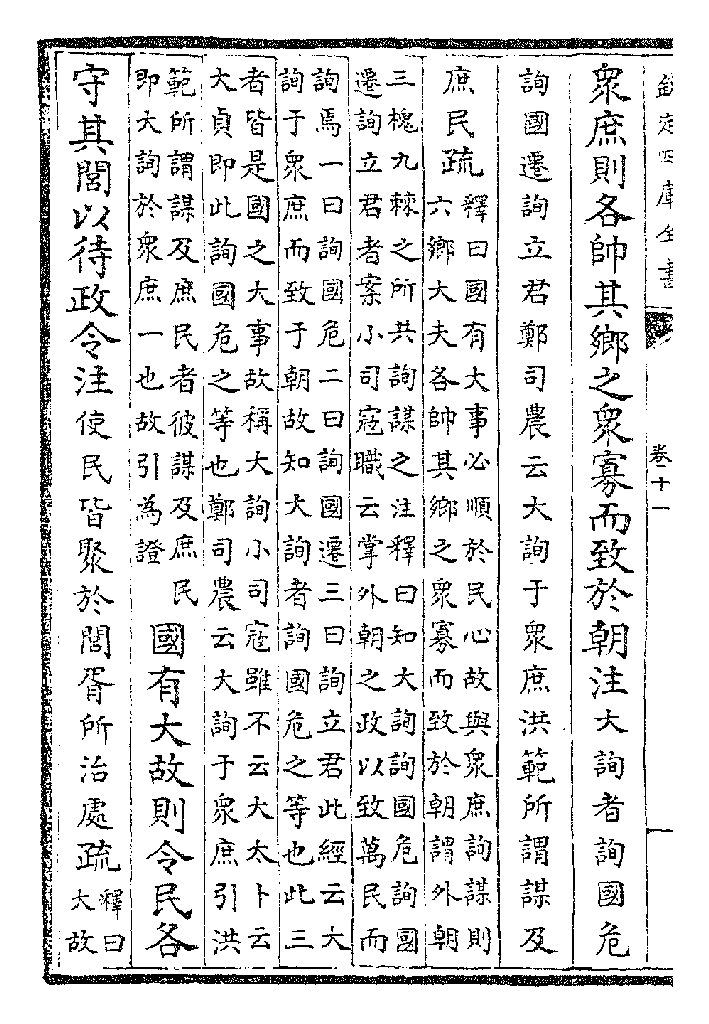 欽定四庫全書
卷十一
衆庶則各帥其鄉之衆寡而致於朝注大詢者詢國危
詢國遷詢立君鄭司農云大詢于衆庶洪範所謂謀及
庶民疏釋曰國有大事必順於民心故與衆庶詢謀則
六鄉大夫各帥其鄉之衆寡而致於朝謂外朝
三槐九棘之所共詢謀之注釋曰知大詢詢國危詢國
遷詢立君者案小司寇職云掌外朝之政以致萬民而
詢焉一曰詢國危二曰詢國遷三曰詢立君此經云大
詢于衆庶而致于朝故知大詢者詢國危之等也此三
者皆是國之大事故稱大詢小司寇雖不云大太卜云
大貞即此詢國危之等也鄭司農云大詢于衆庶引洪
範所謂謀及庶民者彼謀及庶民
即大詢於衆庶一也故引為證
國有大故則令民各
守其閭以待政令注使民皆聚於閭胥所治處疏釋曰
大故